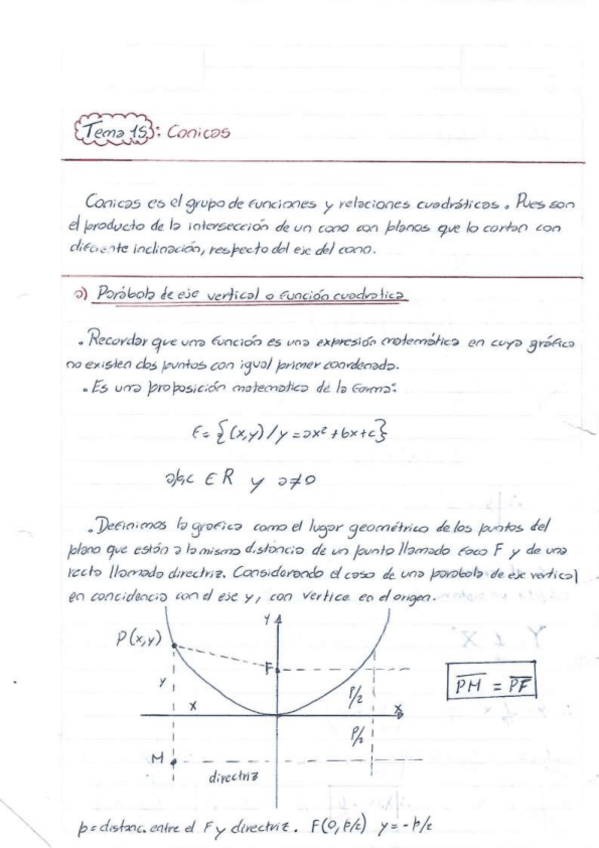 Tema 15: Conicas
Conicas es el grupo de funciones y relaciones cuadráticas. Pues son
el producto de la intersección de un cono con planos que lo cortan con
diferente inclinación, respecto del eje del cono.
a) Parábola de eje vertical o función cuadratica
. Recordar que una función es una expresión matemática en cuya gráfica
no existen dos puntos con igual primer coordenada.
. Es una proposición matematica de la forma:
F = {(x,y)/y=ax²+bx+c}
a,b,c ∈ R y a≠0
. Definimos la grafica como el lugar geométrico de los puntos del
plano que están a la misma distancia de un punto llamado foco F y de una
recta llamada directriz. Considerando el caso de una parabola de eje vertical
en concidencia con el eje y, con vertice en el origen.
Y
P(x,y)
F
PM = PF
y
x
P/2
x
P/2
M
directriz
p = distanc. entre el F y directriz. F(0, P/2) y = -P/2